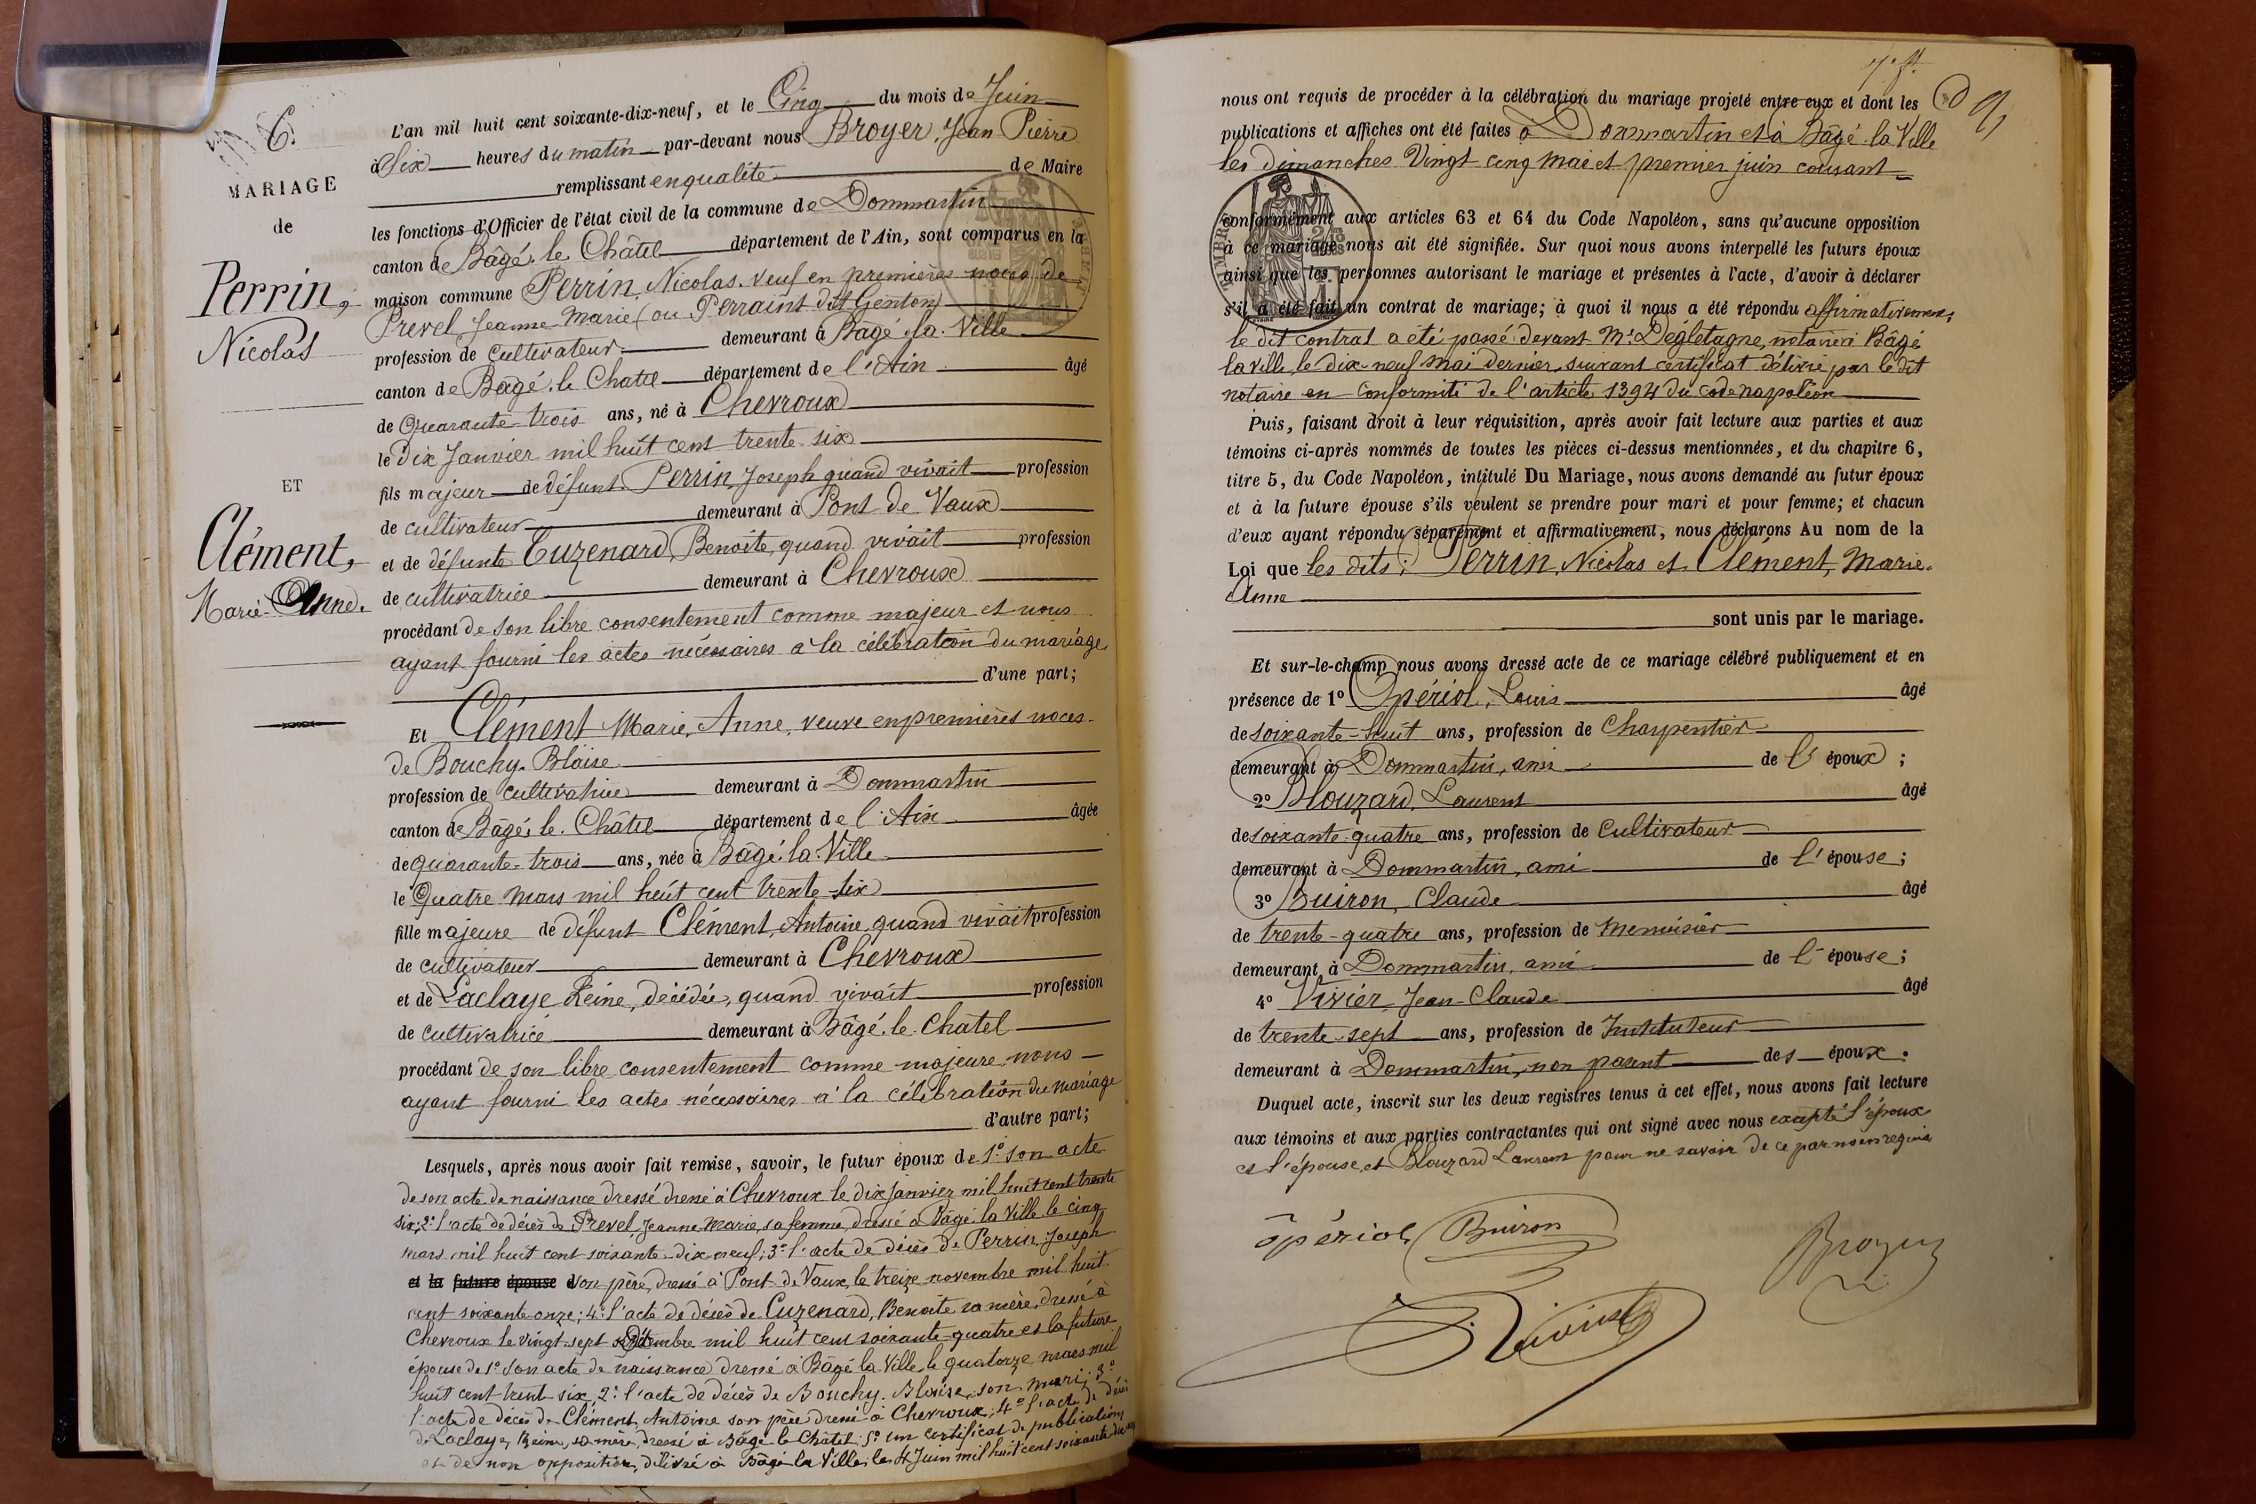 6.
MARIAGE
de
Perrin,
Nicolas
ET
Clément,
Marie-Anne.
L'an mil huit cent soixante-dix-neuf, et le Cinq du mois de Juin
à Six heures du matin par-devant nous Broyer, Jean Pierre
remplissant en qualité de Maire
les fonctions d'Officier de l'état civil de la commune de Dommartin
canton de Bâgé-le-Châtel département de l'Ain, sont comparus en la
maison commune Perrin, Nicolas, veuf en premières noces de
Prevel Jeanne-Marie (ou Perraint dit Genton)
profession de cultivateur demeurant à Bagé-la-Ville
canton de Bâgé-le Chatel département de l'Ain âgé
de Quarante trois ans, né à Chevroux
le Dix Janvier mil huit cent trente six
fils majeur de défunt Perrin, Joseph quand vivait profession
de cultivateur demeurant à Pont-de Vaux
et de défunte Cuzenard, Benoite, quand vivait profession
de cultivatrice demeurant à Chevroux
procédant de son libre consentement comme majeur et nous
ayant fourni les actes nécessaires à la célébration du mariage
d'une part;
Et Clément Marie, Anne, veuve en premières noces
de Bouchy. Blaise
profession de cultivatrice demeurant à Dommartin
canton de Bâgé-le-Châtel département de l'Ain âgée
de quarante-trois ans, née à Bâgé-la-Ville
le Quatre Mars mil huit cent trente-six
fille majeure de défunt Clément, Antoine, quand vivait profession
de cultivateur demeurant à Chevroux
et de Laclaye Reine, décédée, quand vivait profession
de cultivatrice demeurant à Bâgé-le-Chatel
procédant de son libre consentement comme majeure nous
ayant fourni les actes nécessaires à la célébration du mariage
d'autre part;
Lesquels, après nous avoir fait remise, savoir, le futur époux de 1° son acte
de son acte de naissance dressé dressé à Chevroux le dix janvier mil huit cent trente
six; 2° l'acte de décès de Prevel, Jeanne-Marie, sa femme, dressé à Bâgé-la Ville le cinq
mars mil huit cent soixante-dix neuf; 3° l'acte de décès de Perrin Joseph
et la future épouse d son père, dressé à Pont-de Vaux, le treize novembre mil huit
cent soixante onze; 4° l'acte de décès de Cuzenard, Benoite sa mère, dressé à
Chevroux le vingt-sept décembre mil huit cent soixante-quatre et la future
épouse de 1° son acte de naissance dressé à Bâgé la Ville le quatorze mars mil
huit cent trent six, 2° l'acte de décès de Bouchy. Blaise, son mari; 3°
l'acte de décès de Clément, Antoine son père dressé à Chevroux; 4° l'acte de décès
de Laclaye, Reine, sa mère, dressé à Bâgé le Châtel; 5° un certificat de publication
et de non opposition, délivré à Bâgé la Ville, le 4 Juin mil huit cent soixante dix
nous ont requis de procéder à la célébration du mariage projeté entre eux et dont les
publications et affiches ont été faites à Dommartin et à Bâgé-la Ville
les dimanches Vingt cinq Mai et premier juin courant
conformément aux articles 63 et 64 du Code Napoléon, sans qu'aucune opposition
à ce mariage nous ait été signifiée. Sur quoi nous avons interpellé les futurs époux
ainsi que les personnes autorisant le mariage et présentes à l'acte, d'avoir à déclarer
s'il a été fait un contrat de mariage; à quoi il nous a été répondu affirmativement,
le dit contrat a été passé devant Me Degletagne, notaire à Bâgé
la ville, le dix-neuf Mai dernier, suivant certificat délivré par le dit
notaire en conformité de l'article 1394 du code napoléon
Puis, faisant droit à leur réquisition, après avoir fait lecture aux parties et aux
témoins ci-après nommés de toutes les pièces ci-dessus mentionnées, et du chapitre 6,
titre 5, du Code Napoléon, intitulé Du Mariage, nous avons demandé au futur époux
et à la future épouse s'ils veulent se prendre pour mari et pour femme; et chacun
d'eux ayant répondu séparément et affirmativement, nous déclarons Au nom de la
Loi que les dits: Perrin, Nicolas et Clément, Marie-
Anne
sont unis par le mariage.
Et sur-le-champ nous avons dressé acte de ce mariage célébré publiquement et en
présence de 1° Opériol, Louis âgé
de soixante-huit ans, profession de Charpentier
demeurant à Dommartin, ami de l' époux;
2° Blouzard, Laurent âgé
de soixante-quatre ans, profession de Cultivateur
demeurant à Dommartin, ami de l'épouse;
3° Buiron, Claude âgé
de trente-quatre ans, profession de Menuisier
demeurant à Dommartin, ami de l'épouse;
4° Vivier, Jean-Claude âgé
de trente-sept ans, profession de Instituteur
demeurant à Dommartin, non parent des époux.
Duquel acte, inscrit sur les deux registres tenus à cet effet, nous avons fait lecture
aux témoins et aux parties contractantes qui ont signé avec nous excepté l'époux
et l'épouse, et Blouzard Laurent pour ne savoir de ce par nous requis
opériol Buiron
Broyer